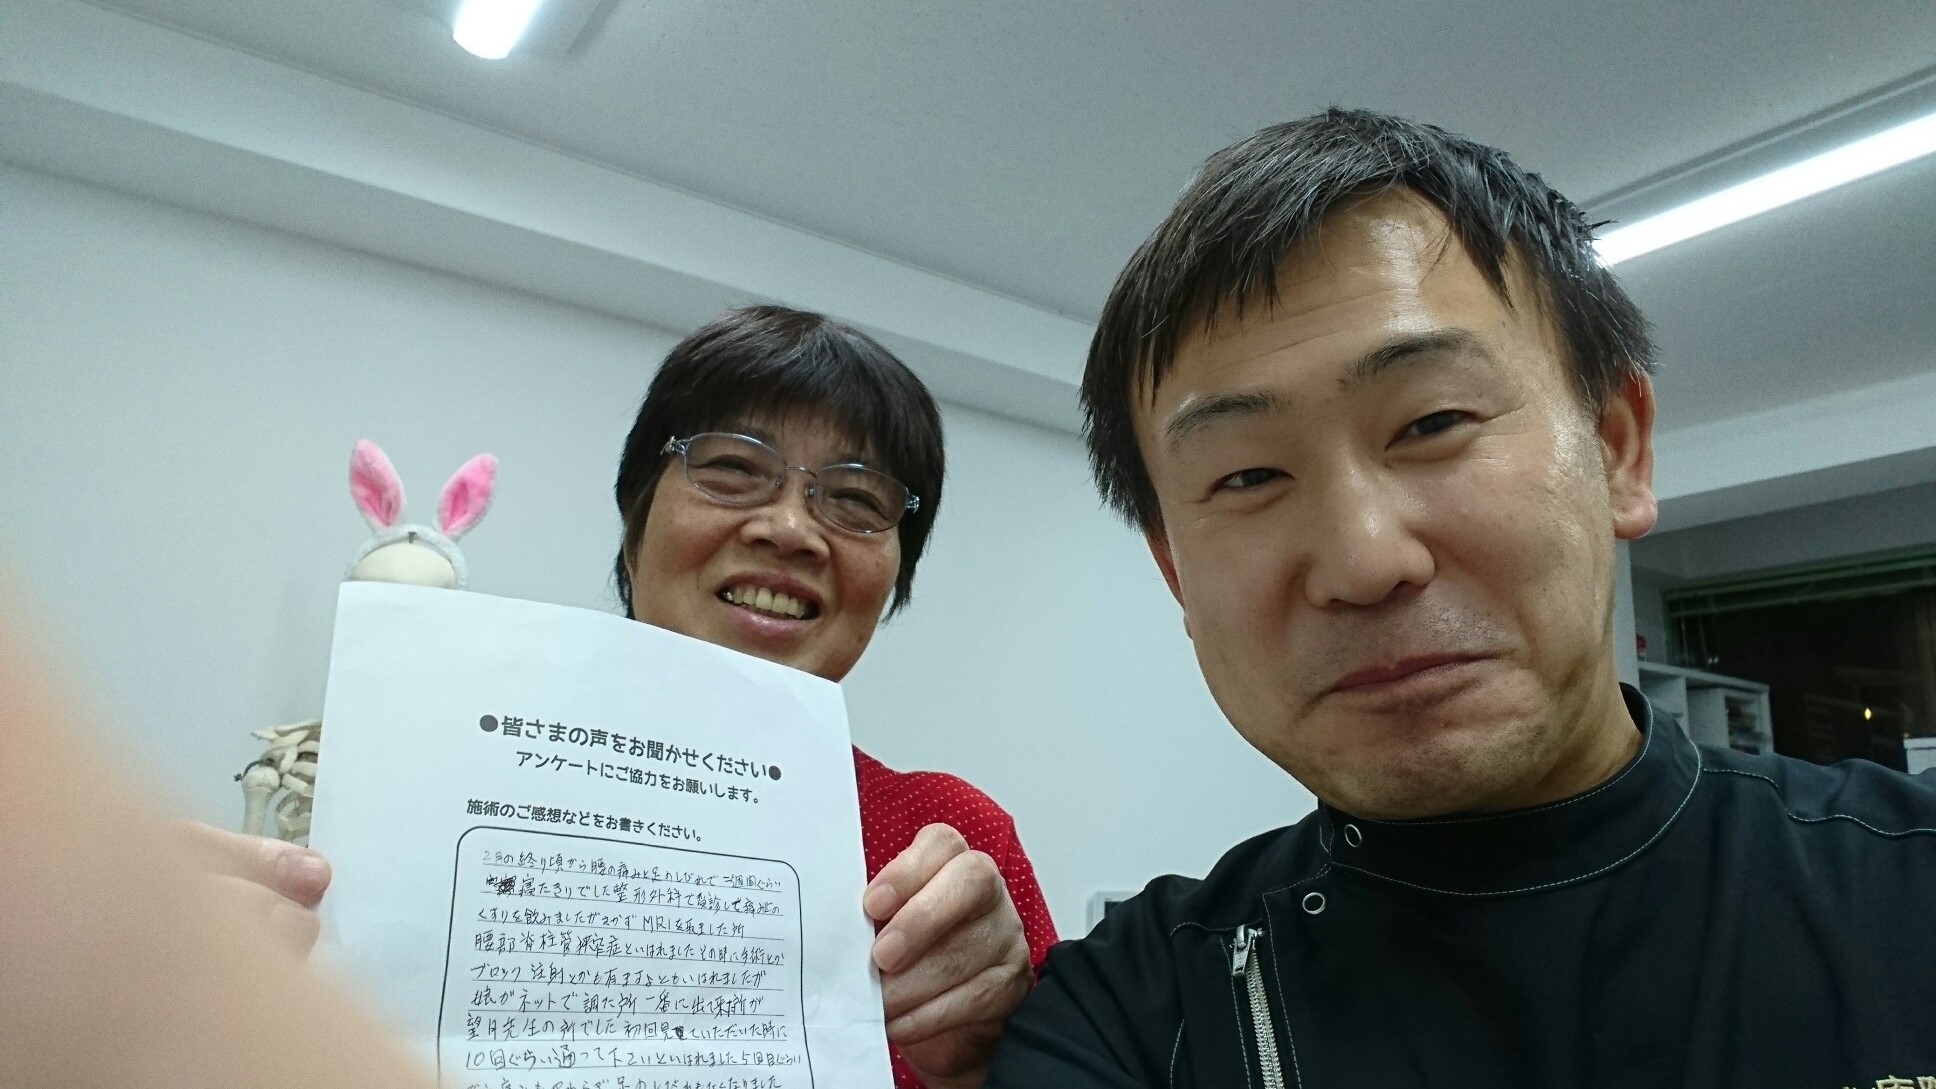 ●皆さまの声をお聞かせください●
アンケートにご協力をお願いします。
施術のご感想などをお書きください。
2月の終り頃から腰の痛みと足のしびれで 3週間ぐらい
寝たきりでした 整形外科で受診して痛み止の
くすりを飲みましたがきかず MRIを取ました所
腰部脊柱管狭窄症といはれました その時に手術とか
ブロック注射とかも有ますよともいはれましたが
娘がネットで調た所 一番に出て来た所が
望月先生の所でした 初回見ていただいた時に
10回ぐらい通って下さいといはれました 5回目ぐらい
足のしびれもなくなりました